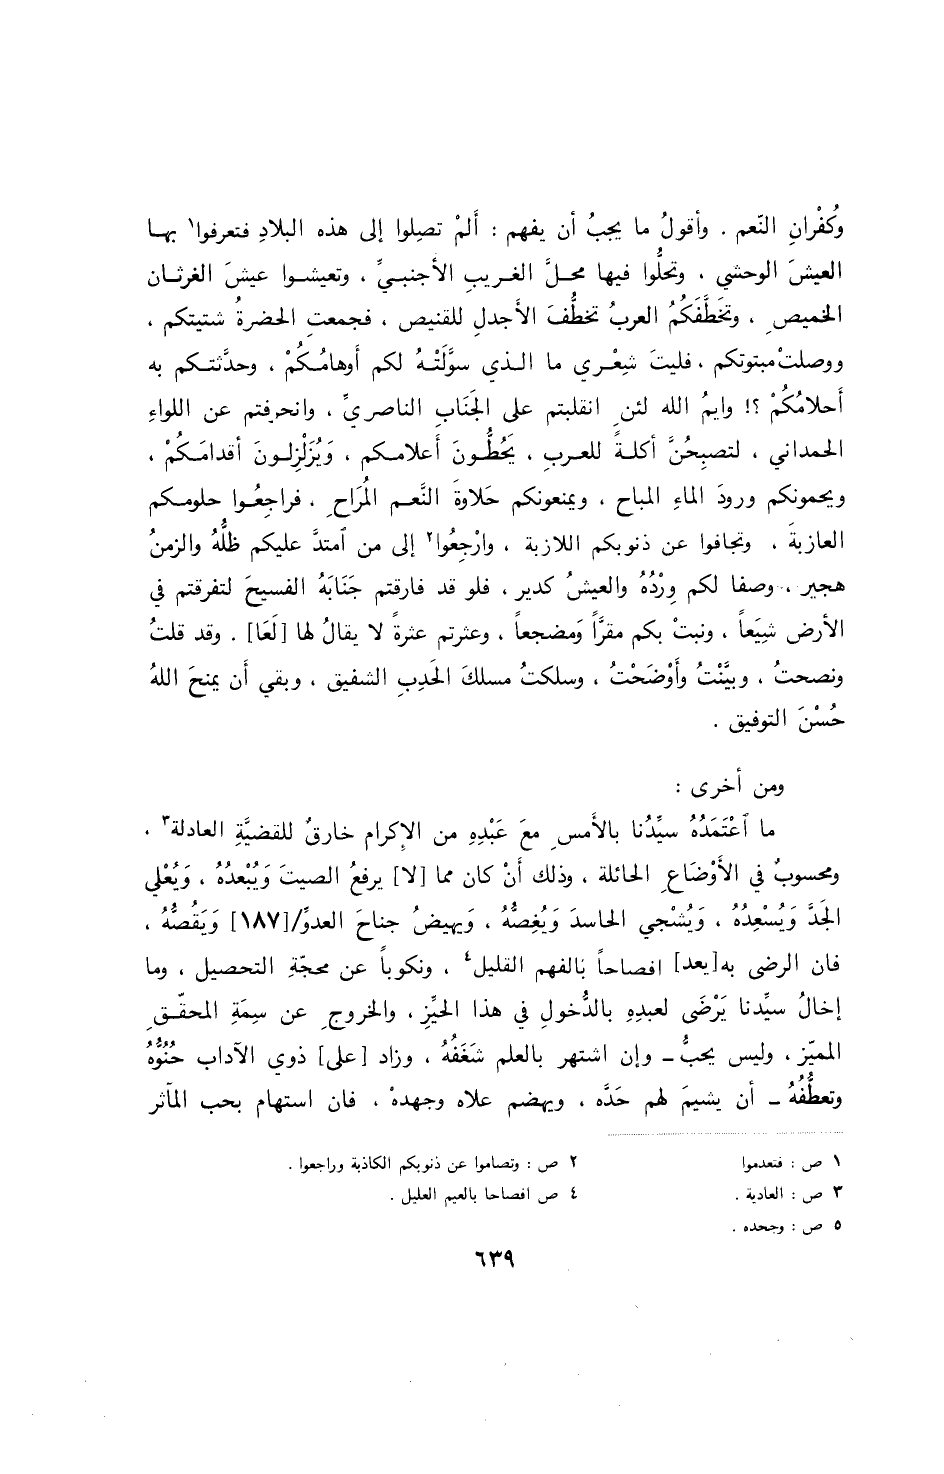 وكُفْرانِ النّعم . وأقولُ ما يجبُ أن يفهم : أَلمْ تصلوا إلى هذه البلادِ فتعرفوا١ بها
العيشَ الوحشي ، وتحلُّوا فيها محلَّ الغريبِ الأجنبيِّ ، وتعيشوا عيشَ الغرثان
الخميصِ ، وتَخَطَّفَكُمُ العربُ تخطُّفَ الأجدلِ للقنيص ، فجمعتِ الحضرةُ شتيتكم ،
ووصلتْ مبتوتكم ، فليتَ شِعْري ما الذي سوَّلَتْهُ لكم أوهامُكُمْ ، وحدَّثتكم به
أحلامُكُمْ ؟! وايمُ الله لئنِ انقلبتم على الجَنَابِ الناصريِّ ، وانحرفتم عن اللواءِ
الحمداني ، لتصبِحُنَّ أكلةً للعربِ ، يَحُطُّونَ أعلامكم ، وَيُزَلْزِلونَ أقدامَكُمْ ،
ويحمونكم ورودَ الماءِ المباح ، ويمنعونكم حَلاوةَ النَّعم المُراحِ ، فراجِعُوا حلومكم
العازبةَ ، وتجافوا عن ذنوبكم اللازبة ، وارْجِعُوا٢ إلى من اَمتدَّ عليكم ظلُّهُ والزمنُ
هجير ، وصفا لكم وِرْدُهُ والعيشُ كدير ، فلو قد فارقتم جَنَابَهُ الفسيحَ لتفرقتم في
الأرض شِيَعاً ، ونبتْ بكم مقرَّاً وَمضجعاً ، وعثرتم عثرةً لا يقالُ لها [لَعَا] . وقد قلتُ
ونصحتُ ، وبيَّنْتُ وأَوْضَحْتُ ، وسلكتُ مسلكَ الحَدِبِ الشفيق ، وبقي أن يمنحَ اللهُ
حُسْنَ التوفيق .
ومن أخرى :
ما اَعْتَمَدَهُ سيِّدُنا بالأمسِ معَ عَبْدِهِ من الإكرام خارقٌ للقضيَّةِ العادلة٣ ،
ومحسوبٌ في الأوْضَاعِ الحائلة ، وذلك أنْ كان مما [لا] يرفعُ الصيتَ وَيُبْعدُهُ ، وَيُعْلي
الجَدَّ وَيُسْعِدُهُ ، وَيُشْجي الحاسدَ وَيُغِصُّهُ ، وَيهيضُ جناحَ العدوِّ/[١٨٧] وَيَقُصُّهُ ،
فان الرضى به[يعد] افصاحاً بَالفهم القليل٤ ، ونكوباً عن محجّةِ التحصيل ، وما
إخالُ سيِّدنا يَرْضَى لعبدِهِ بالدُّخولِ في هذا الحيِّزِ ، والخروجِ عن سِمَةِ المحقّقِ
المميّز ، وليس يحبُّ ـ وإن اشتهر بالعلم شَغَفُهُ ، وزاد [على] ذوي الآداب حُنُوُّهُ
وتعطُّفُهُ ـ أن يشيمَ لهم حَدَّه ، ويهضم علاه وجهدهْ ، فان استهام بحب المآثر
١ ص : فتعدموا
٢ ص : وتصاموا عن ذنوبكم الكاذبة وراجعوا .
٣ ص : العادية .
٤ ص افصاحا بالعيم العليل .
٥ ص : وجحده .
٦٣٩